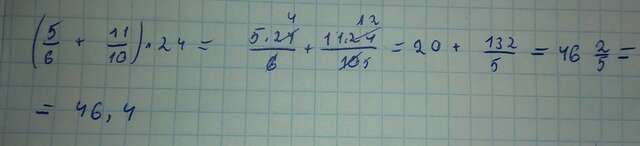 (5/6 + 11/10) · 24 = 5·24 4/6 + 11·24 12/10 5 = 20 + 132/5 = 46 2/5 =
= 46,4